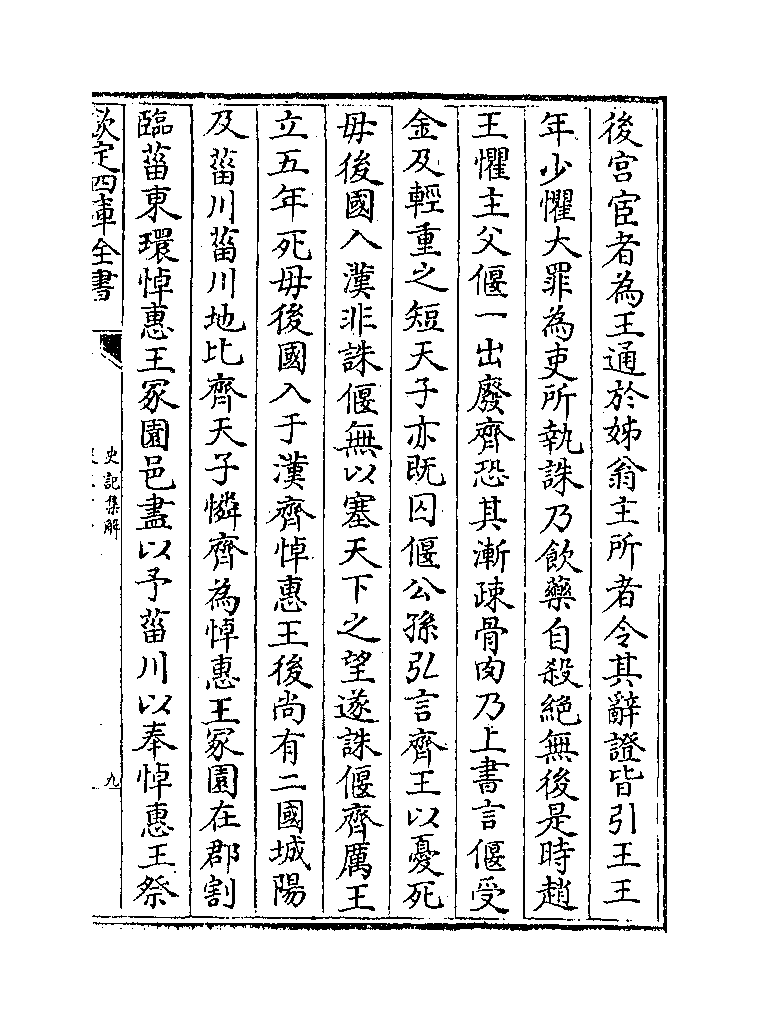 後宫宦者為王通於姊翁主所者令其辭證皆引王王
年少懼大罪為吏所執誅乃飲藥自殺絶無後是時趙
王懼主父偃一出廢齊恐其漸疎骨肉乃上書言偃受
金及輕重之短天子亦既囚偃公孫弘言齊王以憂死
毋後國入漢非誅偃無以塞天下之望遂誅偃齊厲王
立五年死毋後國入于漢齊悼惠王後尚有二國城陽
及菑川菑川地比齊天子憐齊為悼惠王冢園在郡割
臨菑東環悼惠王冢園邑盡以予菑川以奉悼惠王祭
欽定四庫全書
史記集解
九